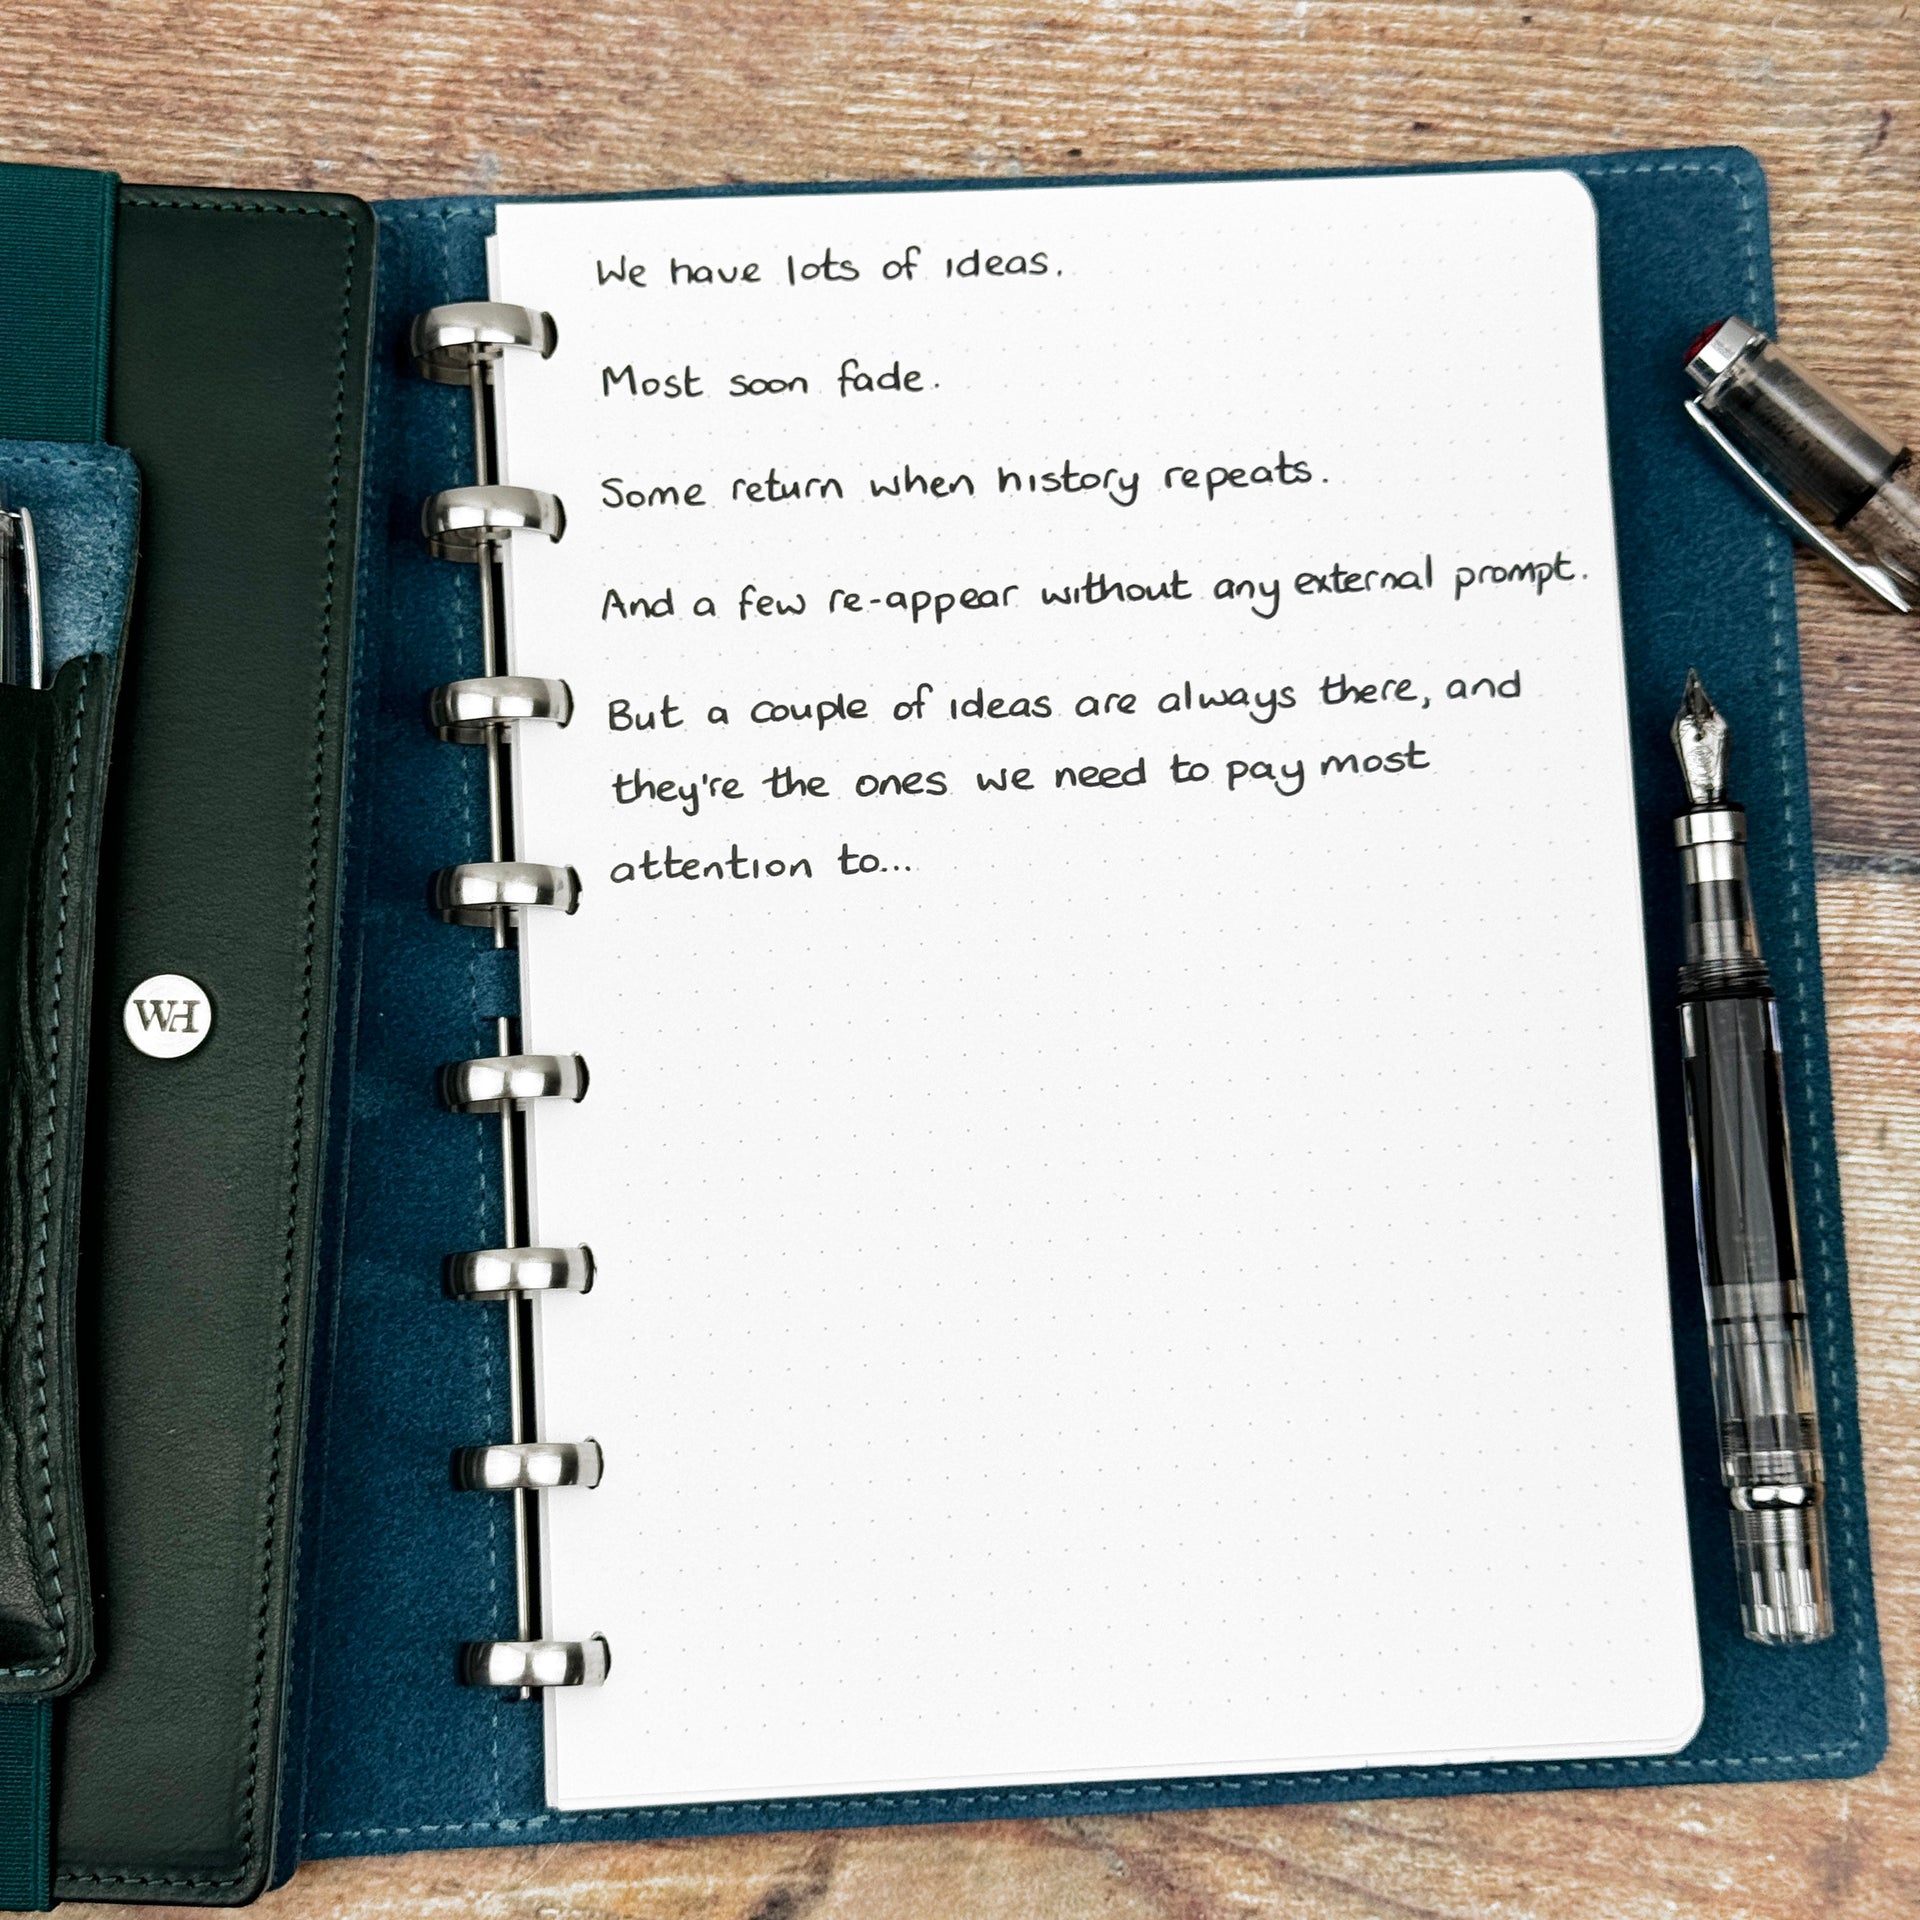 We have lots of ideas.
Most soon fade.
Some return when history repeats.
And a few re-appear without any external prompt.
But a couple of ideas are always there, and
they're the ones we need to pay most
attention to...
WH